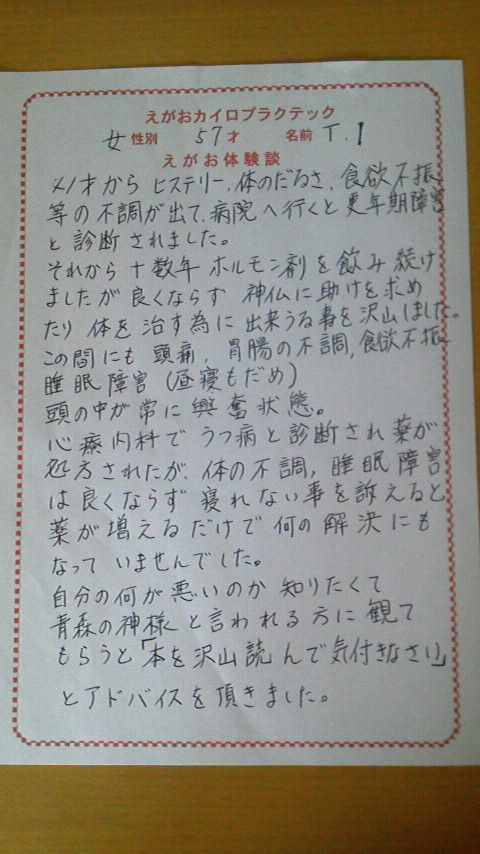 えがおカイロプラクテック
女 性別 57才 名前 T.I
えがお体験談
41才から ヒステリー、体のだるさ、食欲不振
等の不調が出て、病院へ行くと更年期障害
と診断されました。
それから十数年 ホルモン剤を飲み続け
ましたが良くならず 神仏に助けを求め
たり 体を治す為に出来うる事を沢山しました。
この間にも 頭痛、胃腸の不調、食欲不振
睡眠障害（昼寝もだめ）
頭の中が常に興奮状態。
心療内科でうつ病と診断され薬が
処方されたが、体の不調、睡眠障害
は良くならず 寝れない事を訴えると
薬が増えるだけで何の解決にも
なっていませんでした。
自分の何が悪いのか 知りたくて
青森の神様と言われる方に観て
もらうと「本を沢山読んで気付きなさい」
とアドバイスを頂きました。